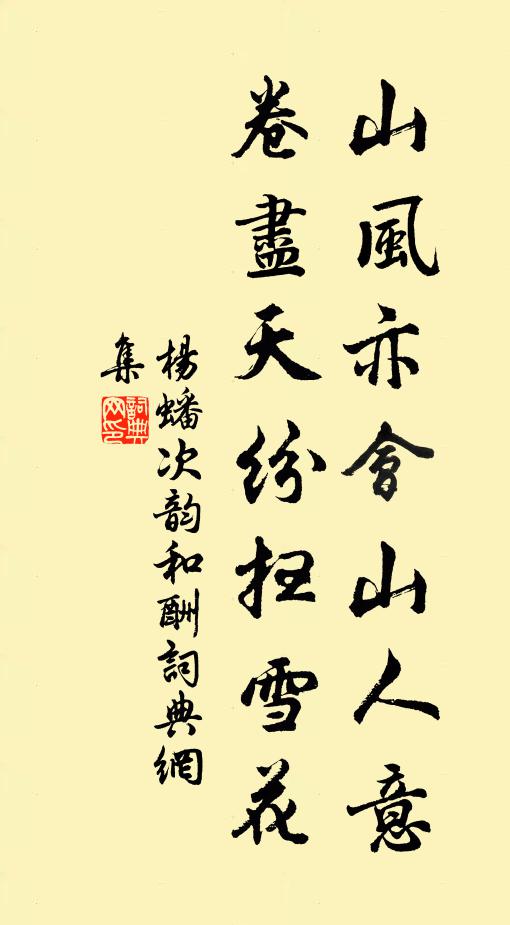 山風亦會山人意
卷盡天紛扫雪花
杨蟠次韵和酬詞典網
集
詞典
网印